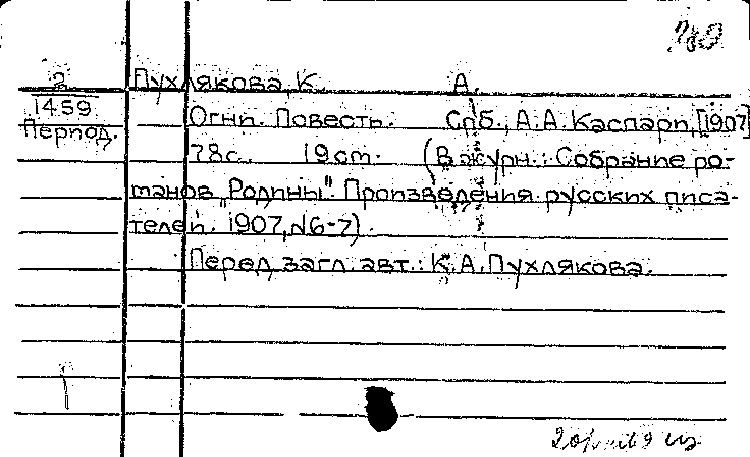 2
Пухлякова, К. А.
1459
Огни. Повесть. Спб., А.А. Каспари, [1907]
Период.
78с. 19ст. (В журн.: Собрание ро-
манов „Родины". Произведения русских писа-
телей. 1907, №6-7)
Перед загл. авт.: К.А. Пухлякова.